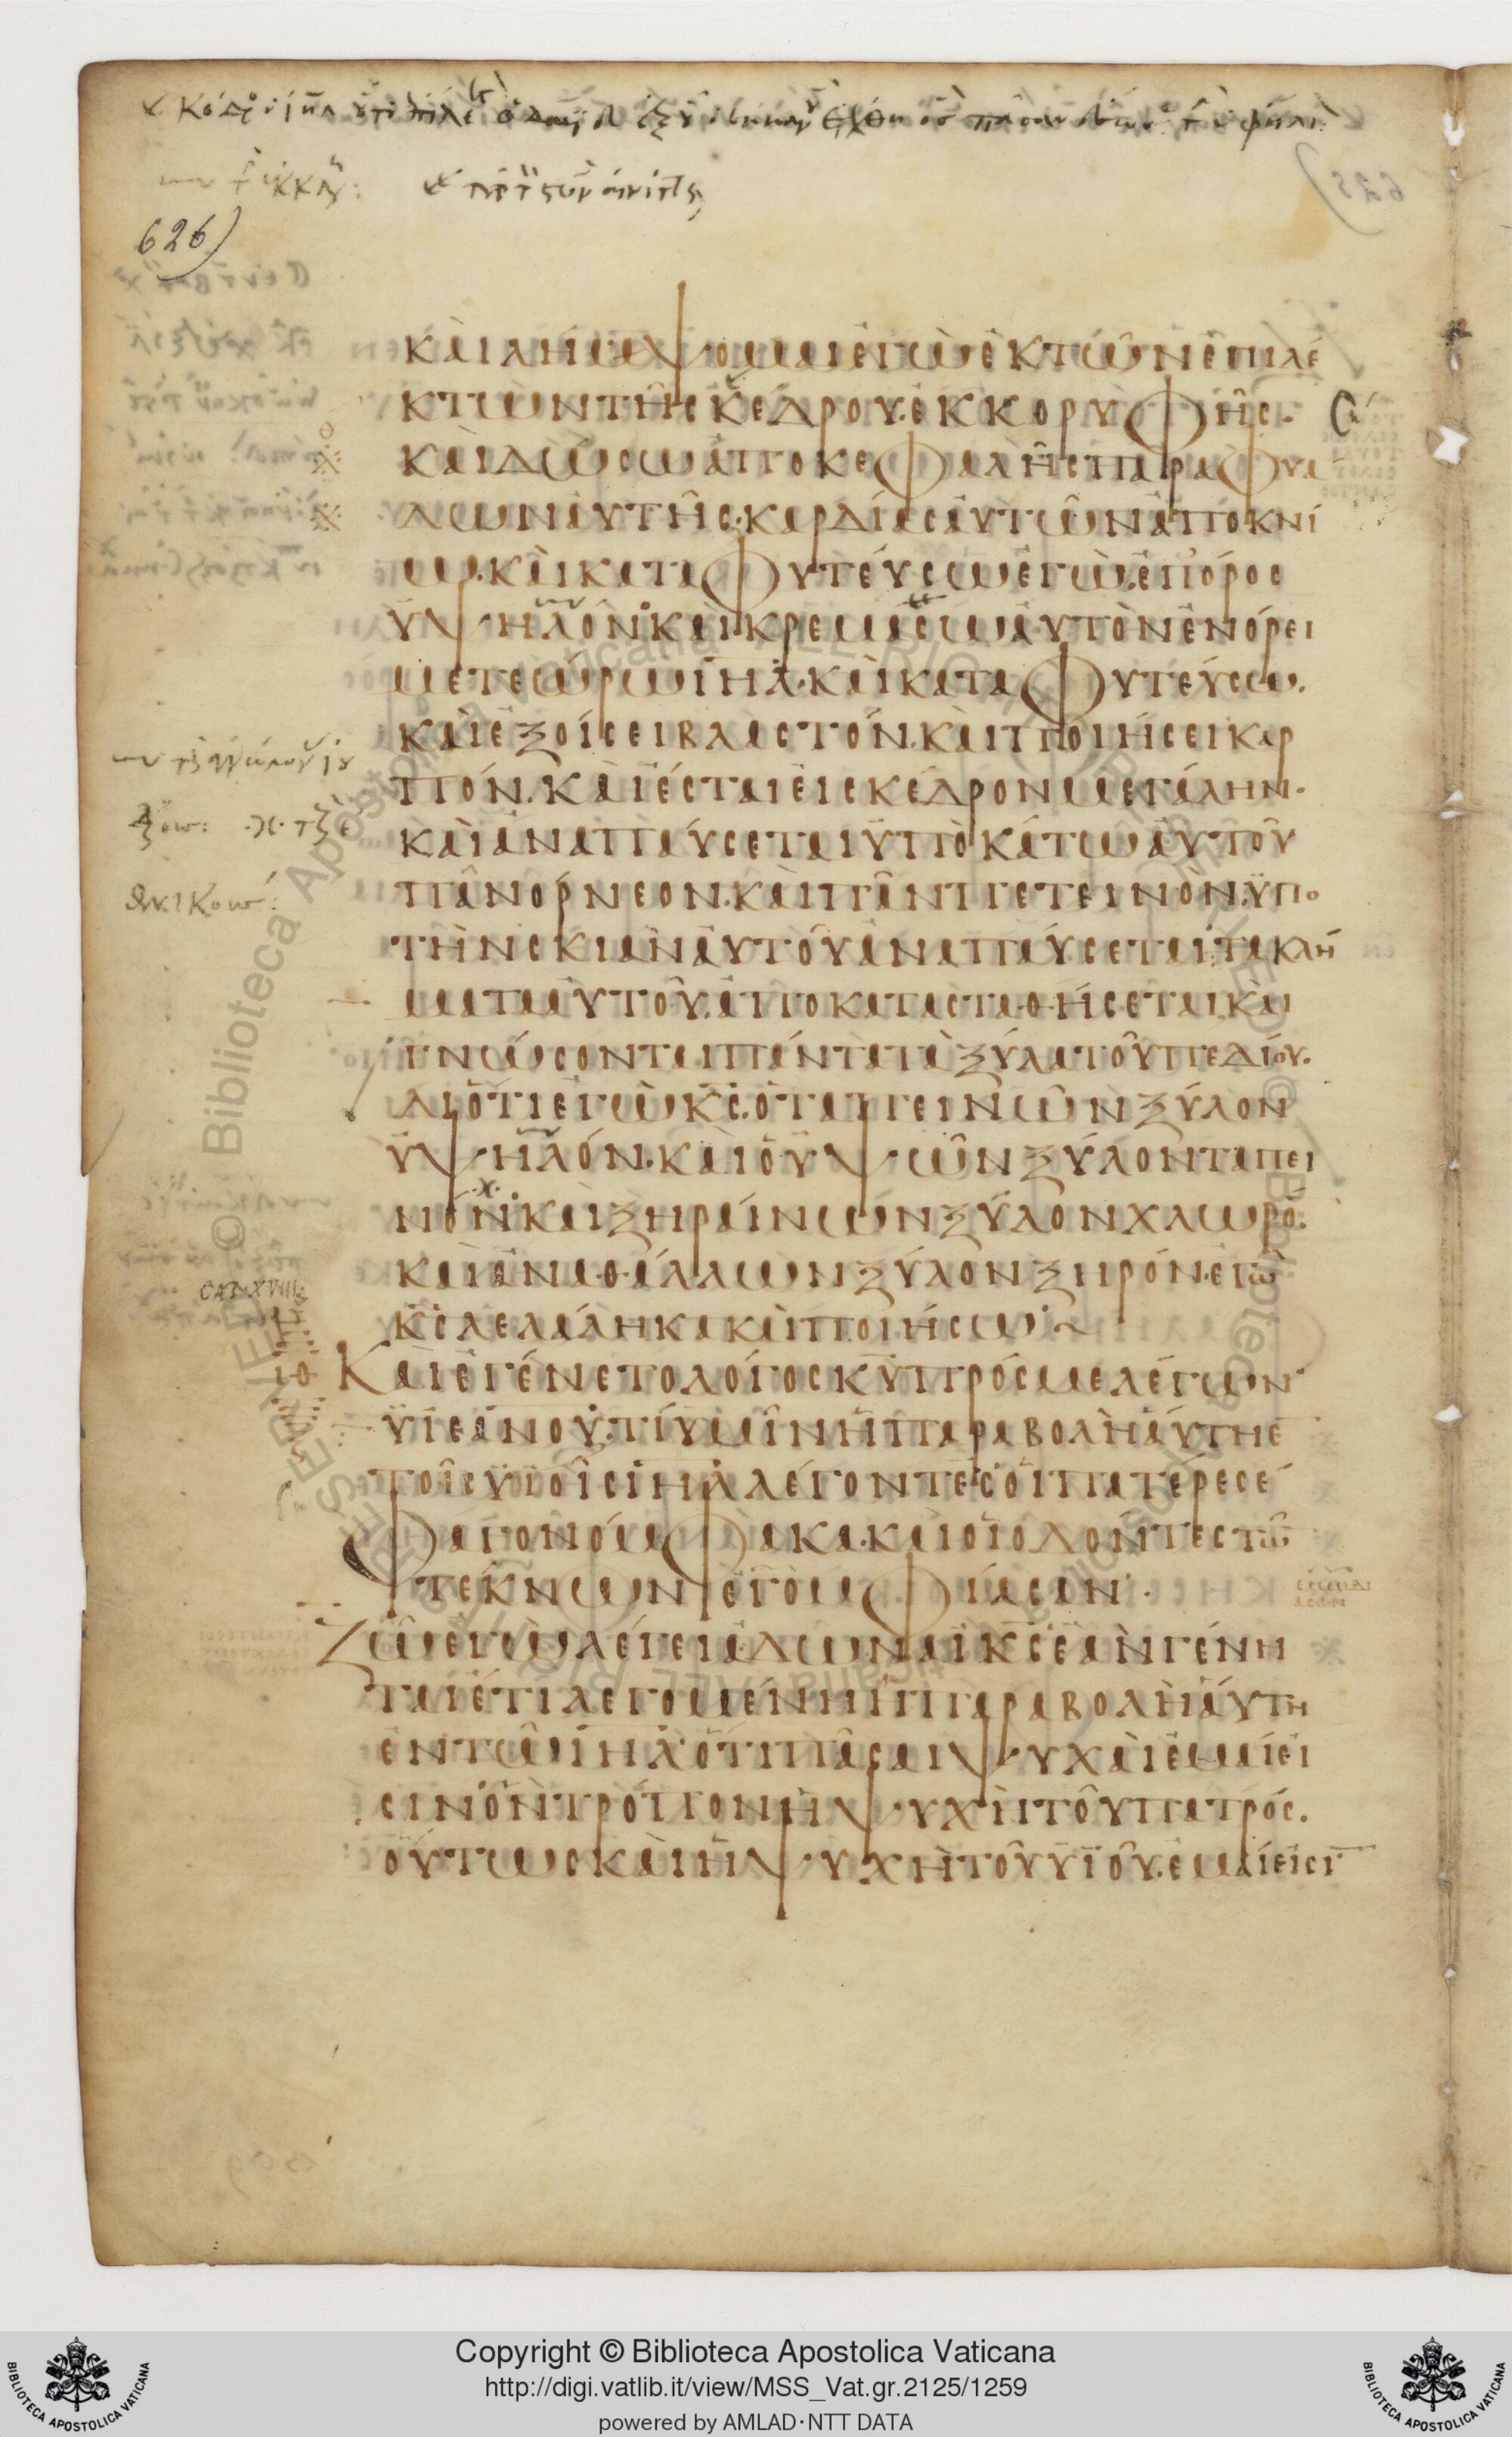 626)
καὶ λήμψομαι ἐγὼ ἐκ τῶν ἐπιλέ
κτων τῆς κέδρου. ἐκ κορυφῆς.
καὶ δώσω ἀπὸ κεφαλῆς παραφυα
δων αὐτῆς. καρδίας αὐτῶν ἀποκνί
ω. καὶ καταφυτεύσω ἐγὼ. ἐπ ὄρος
ὑψηλὸν. καὶ κρεμάσω αὐτὸν ἐν όρει
μετεώρω ιηλ. καὶ καταφυτεύσω.
καὶ ἐξοίσει βλαστόν. καὶ ποιήσει καρ
πόν. καὶ ἔσται εἰς κέδρον μεγάλην.
καὶ ἀναπαύσεται ὑποκάτω αὐτοῦ
πᾶν όρνεον. καὶ πᾶν πετεινὸν. ὑπο
τὴν σκιαν αὐτοῦ ἀναπαύσεται. τα κλή
ματα αὐτοῦ. ἀποκατασταθήσεται. και
γνώσονται πάντα τὰ ξύλα τοῦ πεδίου.
διότι ἐγὼ κς. ὁ ταπεινῶν ξύλον
ὑψηλόν. καὶ ὁ ὑψῶν ξύλον ταπει
νόν. καὶ ξηραίνων ξύλον χλωρό.
καὶ ἀναθάλλων ξύλον ξηρόν. ἐγω
κς λελάληκα καὶ ποιήσω
CAP. XVIII.
Και ἐγένετο λόγος κυ πρός με λέγων
υἱε ἀνου. τί ὑμῖν ἡ παραβολὴ αὕτη ε
τοῖς υἱοῖς ιηλ λέγοντες οἱ πατέρες έ
φαγον όμφακα. και οἱ οδόντες τῶ
τέκνων ἐγομφίασαν.
Ζῶ ἐγὼ λέγει αδωναϊ κς ἐὰν γένη
ται ἔτι λεγομένη ἡ παραβολὴ αὕτη
ἐν τῶ ιηλ. ὅτι πᾶσαι ψυχαὶ ἐμαί εἰ
σιν. ὃν τρόπον ἡ ψυχὴ τοῦ πατρός.
οὕτως καὶ ἡ ψυχὴ τοῦ υἱοῦ. ἐμαί εἰσι
Copyright © Biblioteca Apostolica Vaticana
http://digi.vatlib.it/view/MSS_Vat.gr.2125/1259
powered by AMLAD·NTT DATA